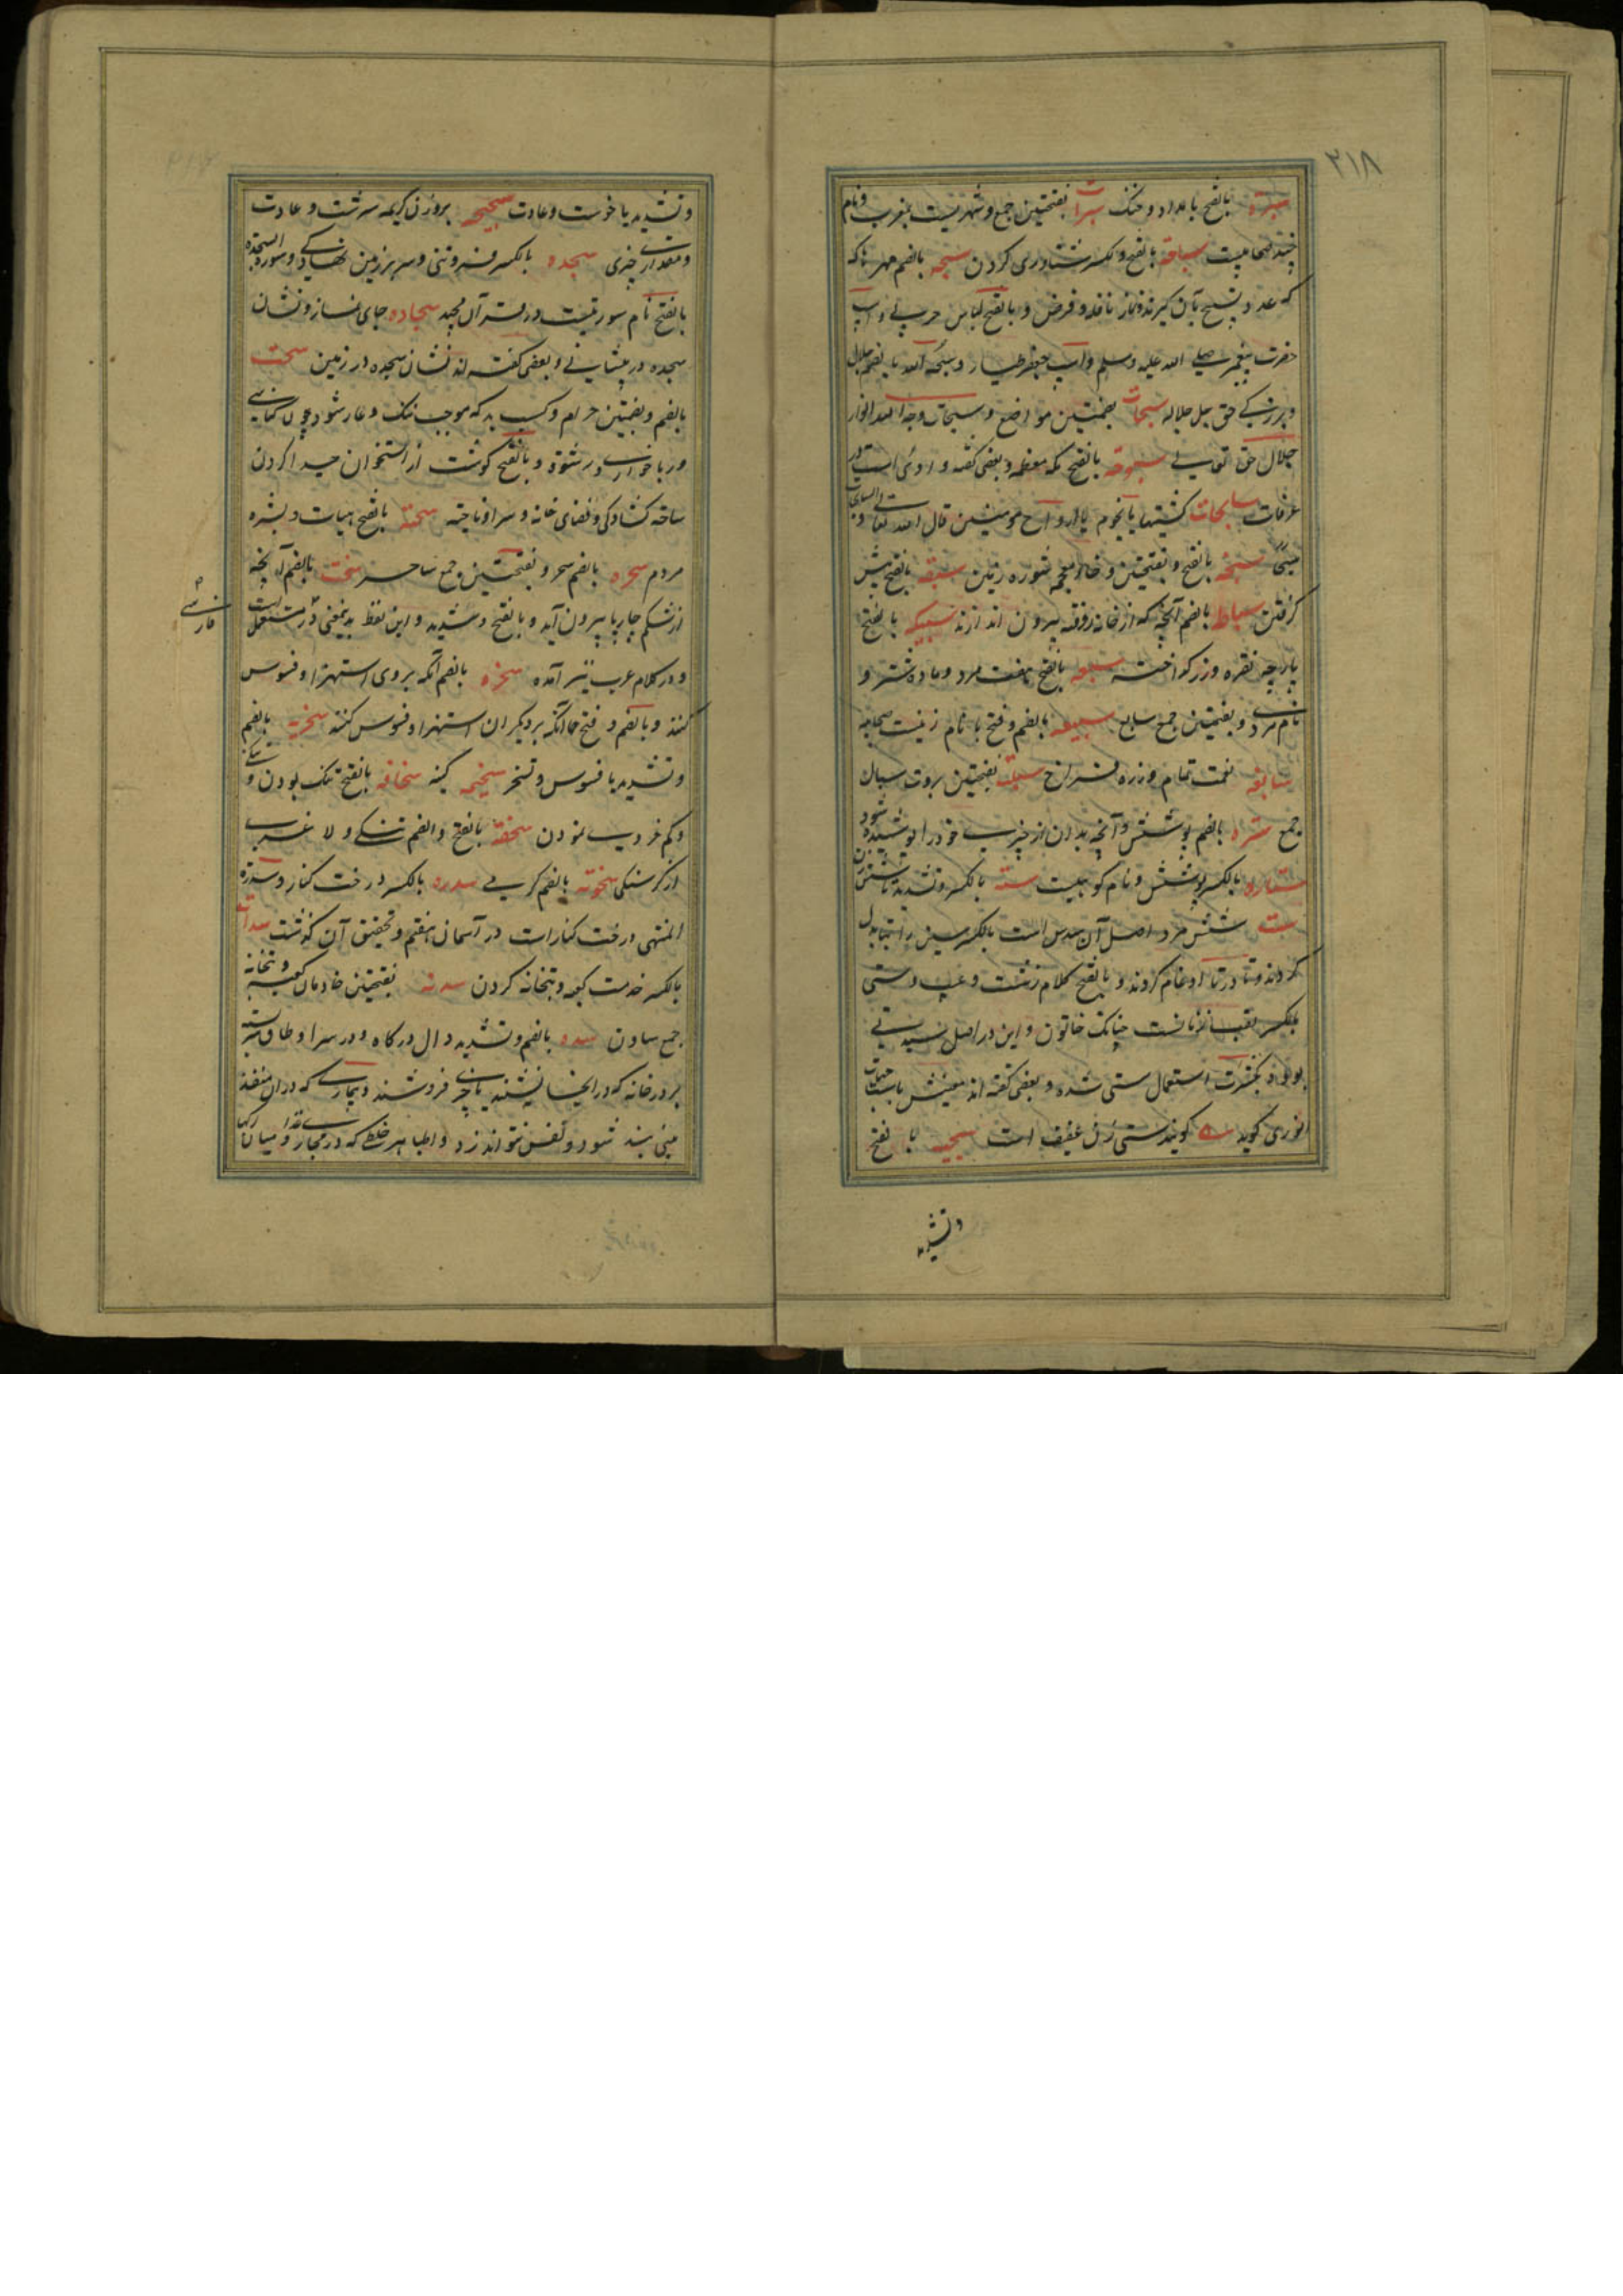 ۳۱۸
سبره بالفتح بامداد و خنک سبرات بفتحتین جمع و شهریست بمغرب و نام
چند صحابیست سباحة بالفتح و بکسر شناوری کردن سبحه بالضم مهرها که
که عدد تسبیح بآن گیرند و نماز نافله و فرض و بالفتح لباس چرمی و اسپ
حضرت پیغمبر صلی الله علیه وسلم و اسپ جعفر طیار و سبحة الله بالضم جلال
و بزرگی حق جل جلاله سبحات بضمتین مواضع و سبحات وجه الله انوار
جلال حق تعالی سبوحه بالفتح مکه معظمه و بعضی گفته وادئی است در
عرفات سابحات کشتیها یا نجوم یا ارواح مومنین قال الله تعالی و السابحات
سبخه بالفتح و بفتحتین و خاء معجمه شوره زمین سبقه بالفتح پیش
گرفتن سباطه بالضم آنچه که از خانه روفته بیرون اندازند سبیکه بالفتح
پارچه نقره و زر گداخته سبعه بالفتح هفت مرد و ماده شتر و
نام مردی و بفتحتین جمع سابع سبیعه بالضم و فتح با نام زنیست صحابیه
سابغه نعمت تمام و زره فراخ سبلة بفتحتین بروت سبال
جمع ستره بالضم پوشش و آنچه بدان از چیزی خود را پوشیده شود
ستاره بالکسر پوشش و نام کوهیست سته بالکسر و تشدید تا شش زن
ست شش مرد اصل آن سدس است بالکسر سین را بتا بدل
کردند و تا در تا ادغام کردند و بالفتح کلام زشت و عیب و ستی
بالکسر لقب زنانست چنانکه خاتون و این در اصل سیدتی
بود و بکثرت استعمال ستی شده و بعضی گفته اند معنیش یا ست جهات
انوری گوید ع گویند ستی زن عفیف است سجیه با لفتح
و تشدید
و تشدید یا خوست و عادت سجیحه بروزن کریمه سرشت و عادت
و مقدار چیزی سجده بالکسر فروتنی و سر بر زمین نهادگی و سورة السجدة
بالفتح نام سورتیست در قرآن مجید سجاده جای نماز و نشان
سجده در پیشانی و بعضی گفته اند نشان سجده در زمین سحت
بالضم و بضمتین حرام و کسب بد که موجب ننگ و عار شود چون کناسی
و رباخواری و رشوة و بالفتح گوشت از استخوان جدا کردن
ساحه کشادگی و فضای خانه و سرا و ناحیه سحنه بالفتح هیات و بشره
مردم سحره بالضم سحر و بفتحتین جمع ساحر سخت بالضم آنچه
از شکم چارپا بیرون آید و بالفتح و شدید و این لفظ بدینمعنی در فارسی مستعمل است
و در کلام عرب نیز آمده سخره بالضم آنکه بروی استهزا و فسوس
کنند و بالضم و فتح خا آنکه بر دیگران استهزا و فسوس کند سخریه بالضم
و تشدید یا فسوس و تسخر سخیمه کینه سخافه بالفتح تنک بودن و
و کم خردی نمودن سخفه بالفتح و الضم تنکی و لاغری
از گرسنگی سخونه بالضم گرمی سدره بالکسر درخت کنار و سدرة
المنتهی درخت کنار است در آسمان هفتم و تحقیق آن گذشت سدانه
بالکسر خدمت کعبه و بتخانه کردن سدنه بفتحتین خادمان کعبه و بتخانه
جمع سادن سده بالضم و تشدید دال درگاه و در سرا و طاق
بر در خانه که در اینجا نشینند یا چیزی فروشند و بیماری که در آن منفذ
بینی بند شود و نفس نتواند زد و اطبا هر خلطی که در مجاری